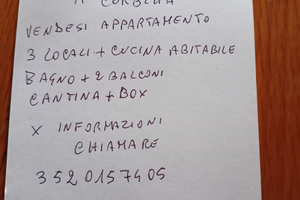 VENDESI APPARTAMENTO
3 LOCALI + CUCINA ABITABILE
BAGNO + 2 BALCONI
CANTINA + BOX
X INFORMAZIONI
CHIAMARE
3520157405